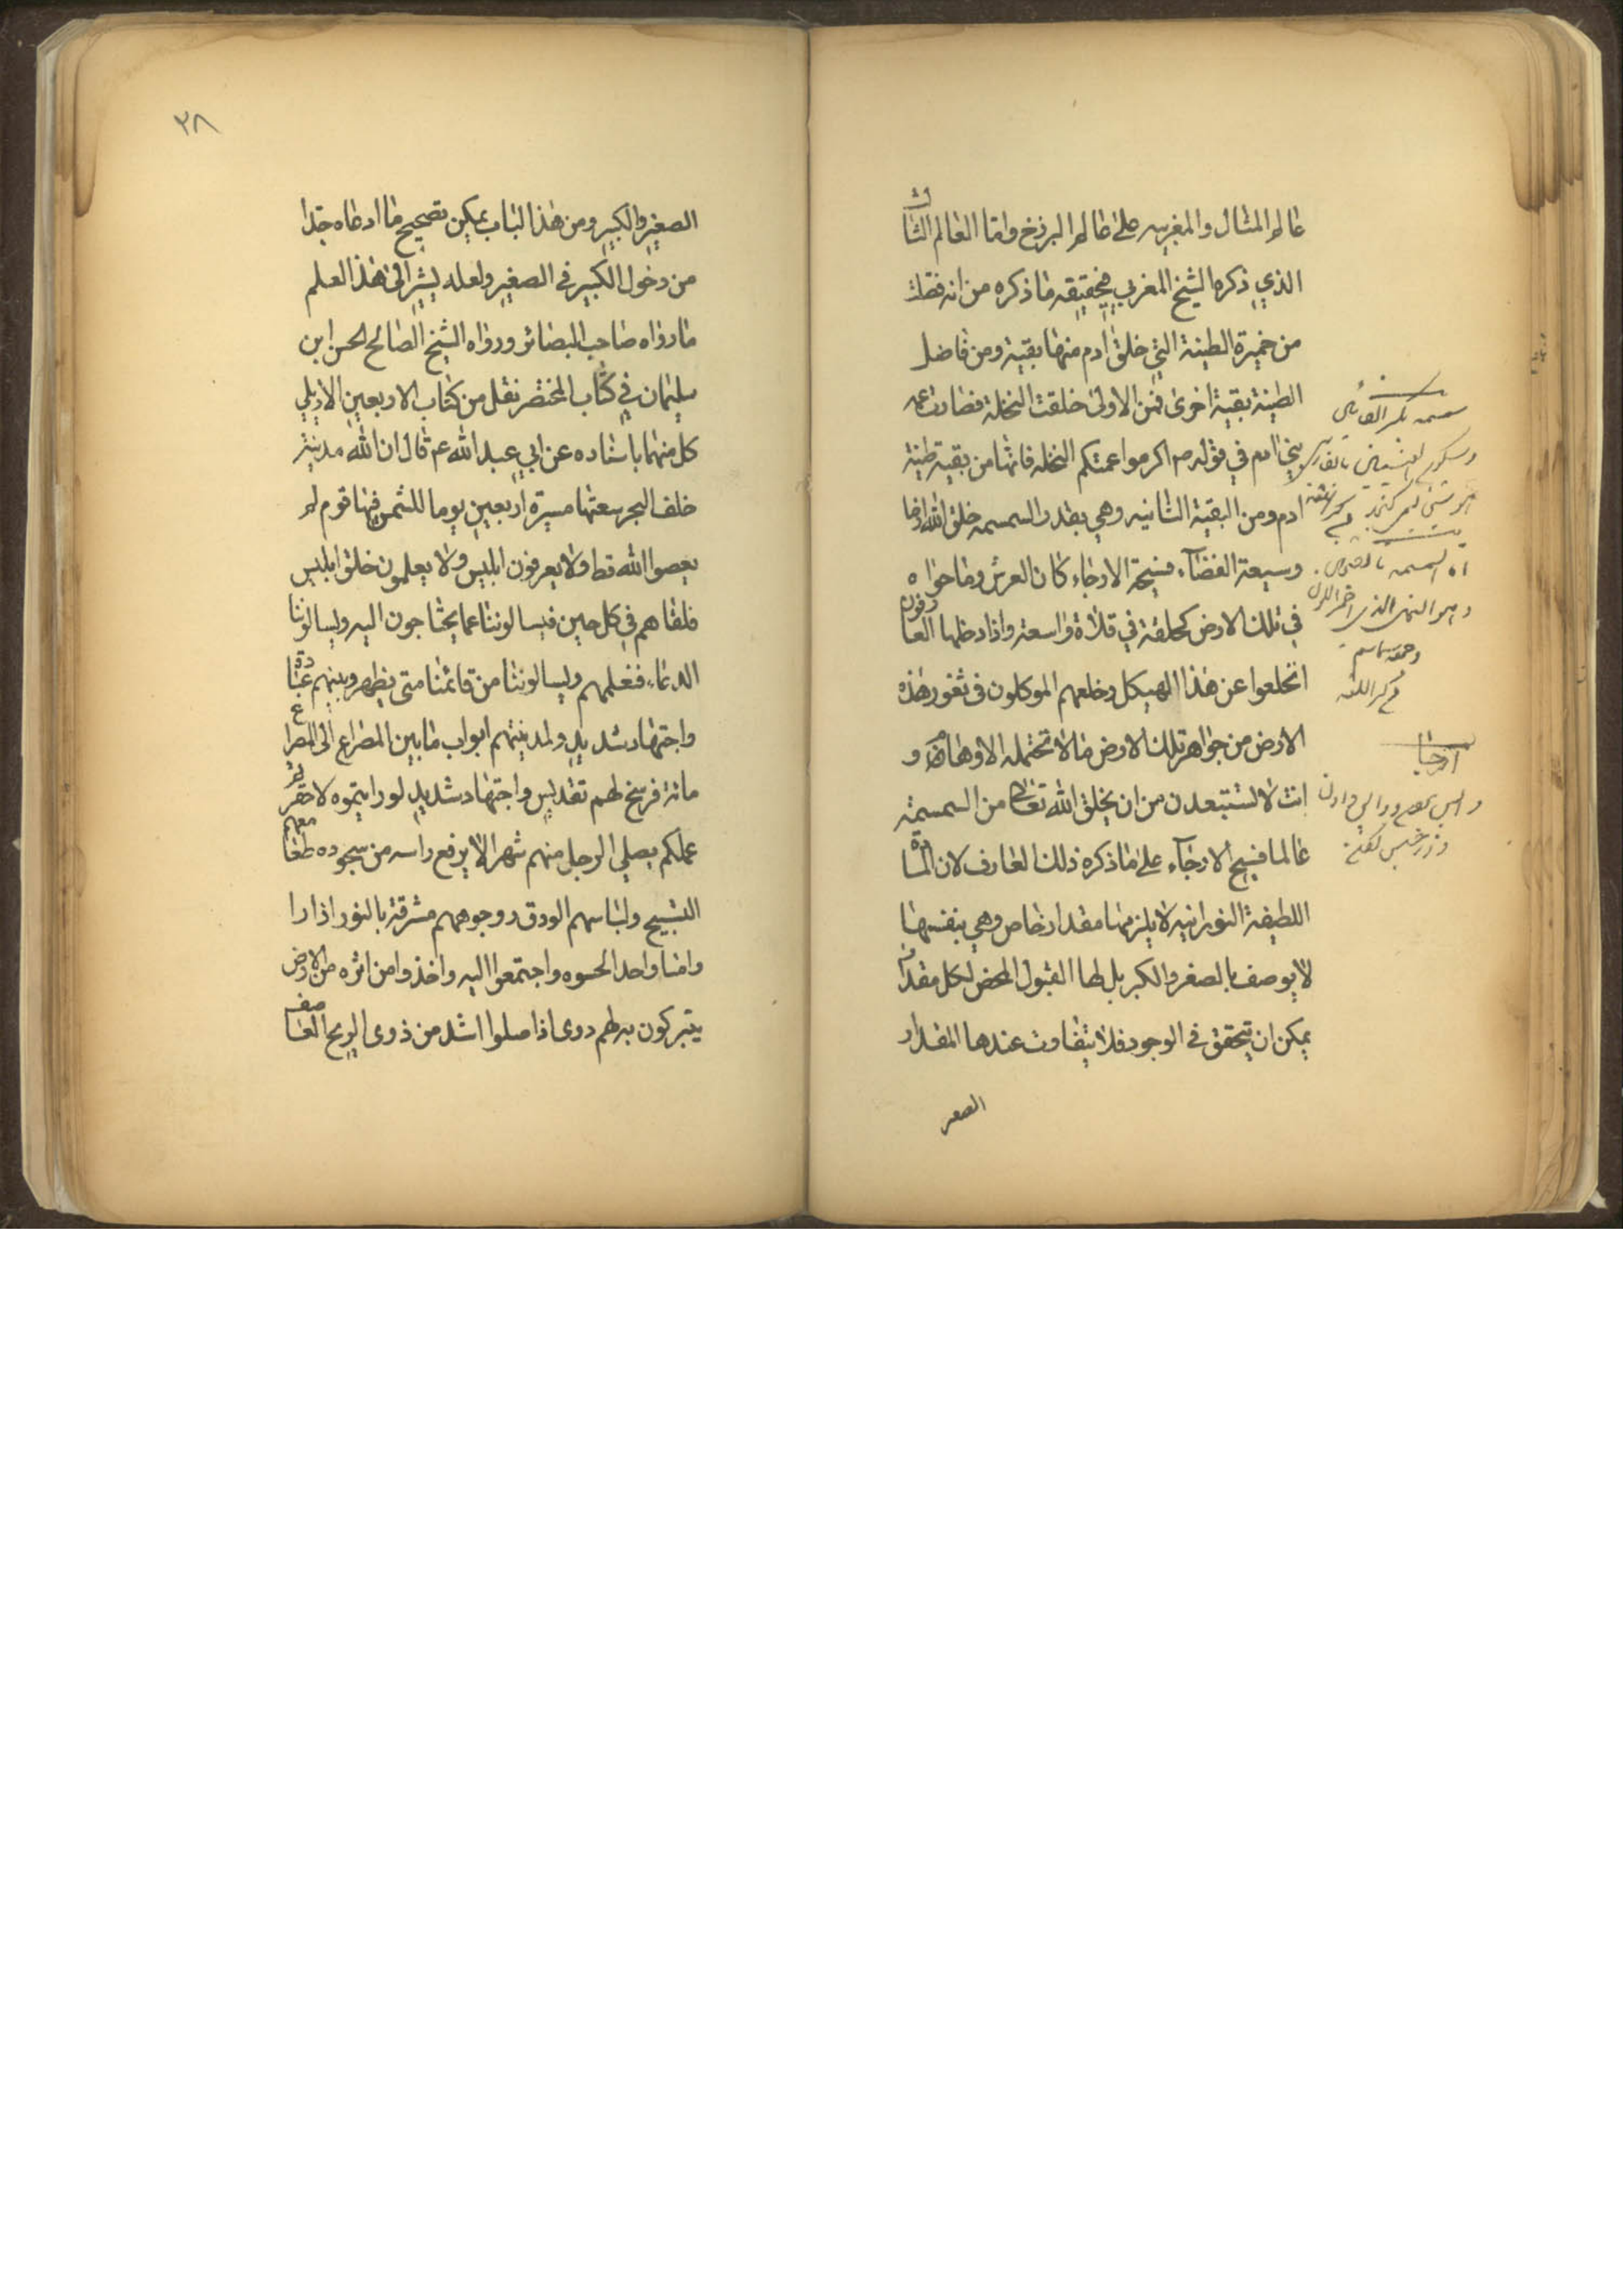 عالم المثال والمغربيه على عالم البرزخ واما العالم الثالث
الذي ذكره الشيخ المغربي فحقيقه ما ذكره من انه فضلت
من خميرة الطينة التي خلق ادم منها بقية ومن فاضل
الطينة بقية اخرى فمن الاولى خلقت النخلة فصارت عمه
بني ادم في قوله ص اكرموا عمتكم النخلة فانها من بقية طينة
ادم ومن البقية الثانيه وهي بقدر السمسمه خلق الله ارضا
وسيعة الفضآء فسيحة الارجاء كان العرش وما حواه
في تلك الارض كحلقة في فلاة واسعة واذا دخلها العارفون
انخلعوا عن هذا الهيكل وخلعهم الموكلون في ثغور هذه
الارض من جواهر تلك الارض ما لا تحتمله الاوهام و
انت لا تستبعدن من ان يخلق الله تعالى من السمسمة
عالما فسيح الارجآء على ما ذكره ذلك العارف لان المادة
اللطيفة النورانيه لا يلزمها مقدار خاص وهي بنفسها
لا يوصف بالصغر والكبر بل لها القبول المحض لكل مقدار
يمكن ان يتحقق في الوجود فلا يتفاوت عندها المقدار
الصغير
ارجا
٣٨
الصغير والكبير ومن هذا الباب يمكن تصحيح ما ادعاه جدا
من دخول الكبير في الصغير ولعله يشير الى هذا العلم
ما رواه صاحب البصائر ورواه الشيخ الصالح الحسن ابن
سليمان في كتاب المختصر نقل من كتاب الاربعين الاربلي
كل منهما باسناده عن ابي عبد الله ع قال ان لله مدينة
خلف البحر سعتها مسيرة اربعين يوما للشمس فيها قوم لم
يعصوا الله قط ولا يعرفون ابليس ولا يعلمون خلق ابليس
فلقاهم في كل حين فيسالوننا عما يحتاجون اليه ويسالوننا
الدعاء فنعلمهم ويسالوننا من قائمنا متى يظهر وبينهم عبادة
واجتهاد شديد ولمدينتهم ابواب ما بين المصراع الى المصراع
مائة فرسخ لهم تقديس واجتهاد شديد لو رايتموه لاحتقرتم
عملكم يصلي الرجل منهم شهرا لا يرفع راسه من سجوده طعامهم
التسبيح ولباسهم الورق ووجوههم مشرقة بالنور اذا راا
وا منا واحدا لحسوه واجتمعوا اليه واخذوا من اثره من الارض
يتبركون به لهم دوى اذا صلوا اشد من دوى الريح العاصف